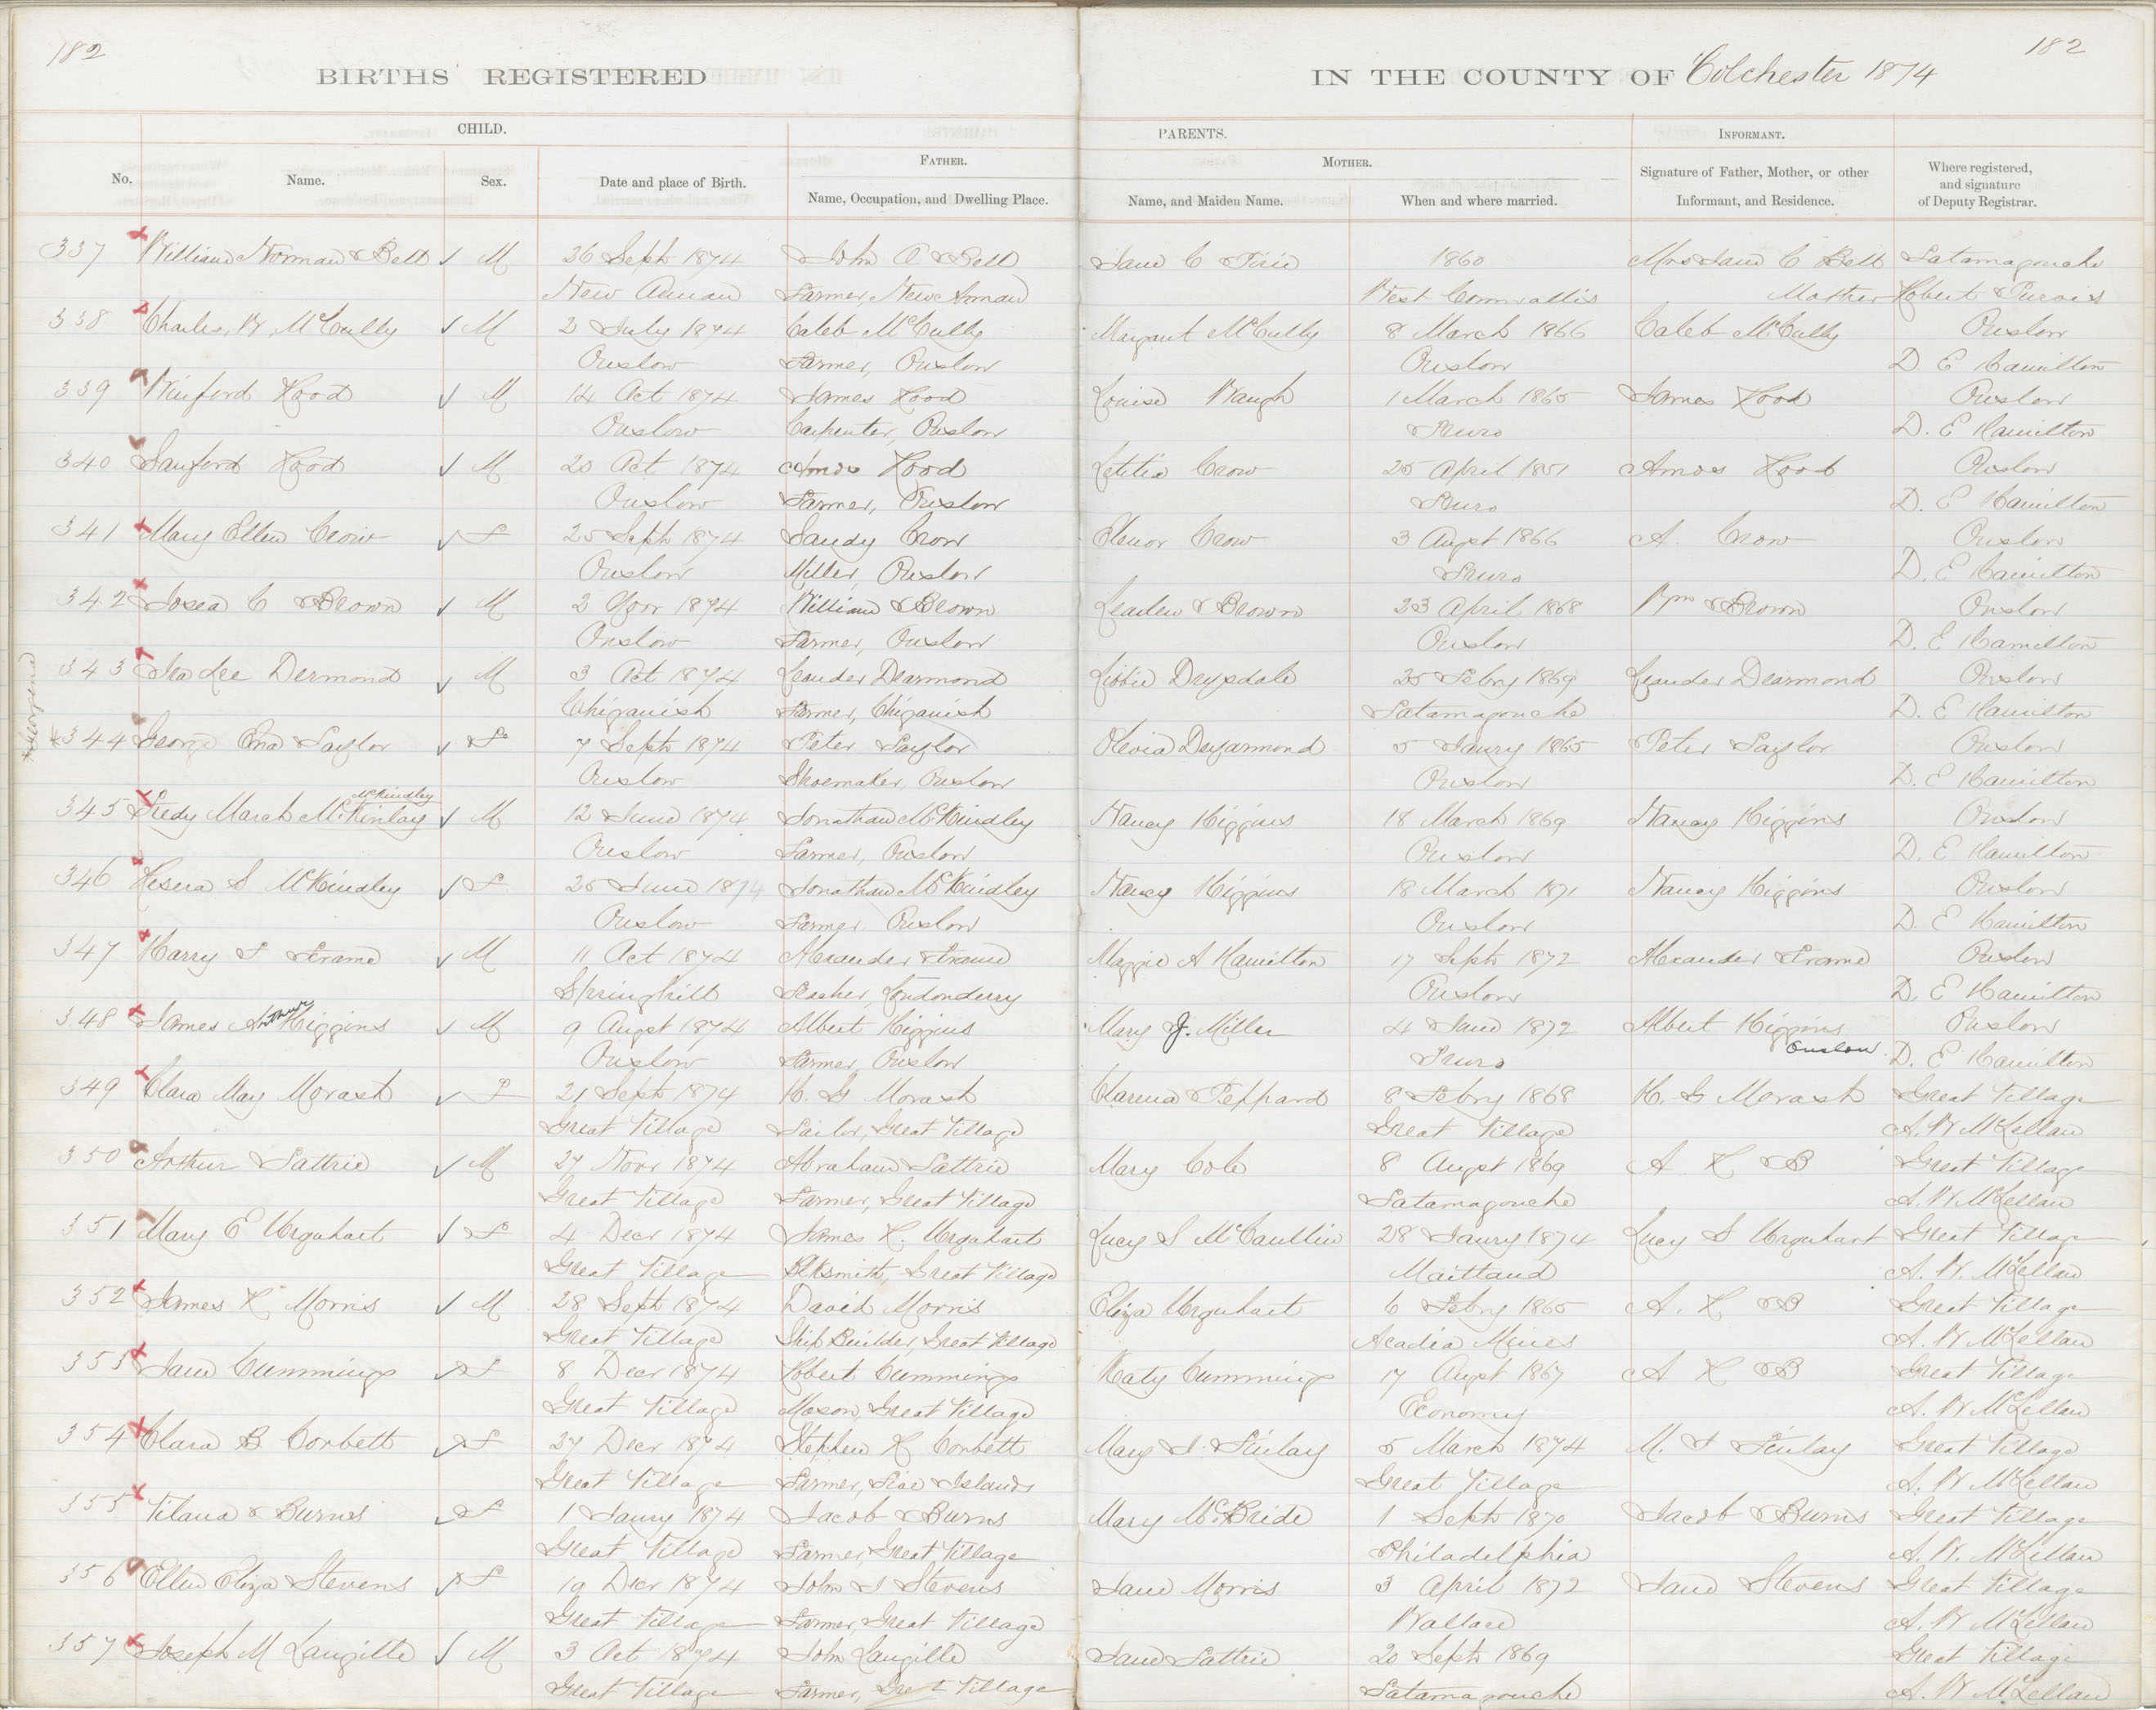 182
182
BIRTHS REGISTERED
IN THE COUNTY OF Colchester 1874
CHILD.
PARENTS.
INFORMANT.
FATHER.
MOTHER.
No.
Name.
Sex.
Date and place of Birth.
Name, Occupation, and Dwelling Place.
Name, and Maiden Name.
When and where married.
Signature of Father, Mother, or other Informant, and Residence.
Where registered, and signature of Deputy Registrar.
337 William Norman Bell M 26 Sept 1874 John A Bell Jane C Pirie 1860 Mrs Jane C Bell Tatamagouche
New Annan Farmer, New Annan West Cornwallis Mother Robert Purves
338 Charles W McCully M 2 July 1874 Caleb McCully Margaret McCully 8 March 1866 Caleb McCully Onslow
Onslow Farmer, Onslow Onslow D. E Hamilton
339 Winford Hood M 14 Oct 1874 James Hood Louisa Waugh 1 March 1865 James Hood Onslow
Onslow Carpenter, Onslow Truro D. E Hamilton
340 Sanford Hood M 20 Oct 1874 Amos Hood Letitia Crow 25 April 1851 Amos Hood Onslow
Onslow Farmer, Onslow Truro D. E Hamilton
341 Mary Ellen Crow F 25 Sept 1874 Sandy Crow Elenor Crow 3 Augst 1866 A. Crow Onslow
Onslow Miller, Onslow Truro D. E Hamilton
342 Hosea C Brown M 2 Novr 1874 William Brown Brown 23 April 1868 Wm Brown Onslow
Onslow Farmer, Onslow Onslow D. E Hamilton
343 Ira Lee Dermond M 3 Oct 1874 Leander Dearmond Libbie Drysdale 25 Febry 1869 Leander Dearmond Onslow
Chiganish Farmer, Chiganish Tatamagouche D. E Hamilton
*Georgena
*344 George Ena Taylor F 7 Sept 1874 Peter Taylor Olevia Deyarmond 5 Jany 1865 Peter Taylor Onslow
Onslow Shoemaker, Onslow Onslow D. E Hamilton
McKindley
345 Fredy March McKinlay M 12 June 1874 Jonathan McKindley Nancy Higgins 18 March 1869 Nancy Higgins Onslow
Onslow Farmer, Onslow Onslow D. E Hamilton
346 S McKindley F 25 June 1874 Jonathan McKindley Nancy Higgins 18 March 1871 Nancy Higgins Onslow
Onslow Farmer, Onslow Onslow D. E Hamilton
347 Harry F Frame M 11 Oct 1874 Alexander Frame Maggie A Hamilton 17 Sept 1872 Alexander Frame Onslow
Springhill Teacher, Londonderry Onslow D. E Hamilton
348 James Arthur Higgins M 9 Augst 1874 Albert Higgins Mary J. Miller 4 June 1872 Albert Higgins Onslow
Onslow Farmer, Onslow Truro Onslow D. E Hamilton
349 Clara May Morash F 21 Sept 1874 H. G Morash Clarena Peppard 8 Febry 1868 H. G Morash Great Village
Great Village Tailor, Great Village Great Village A. W McLellan
350 Arthur Tattrie M 27 Novr 1874 Abraham Tattrie Mary Cole 8 Augst 1869 A H B Great Village
Great Village Farmer, Great Village Tatamagouche A. W McLellan
351 Mary E Urquhart F 4 Decr 1874 James H. Urquhart Lucy S McCaullin 28 Jany 1874 Lucy S Urquhart Great Village
Great Village Blksmith, Great Village Maitland A. W. McLellan
352 James H Morris M 28 Sept 1874 David Morris Eliza Urquhart 6 Febry 1865 A. H B Great Village
Great Village Ship Builder, Great Village Acadia Mines A. W McLellan
353 Jane Cummings F 8 Decr 1874 Robert Cummings Katy Cummings 17 Augst 1867 A H B Great Village
Great Village Mason, Great Village Economy A. W McLellan
354 Clara B Corbett F 27 Decr 1874 Stephen H Corbett Mary J Finlay 5 March 1874 M. J Finlay Great Village
Great Village Farmer, Five Islands Great Village A. W McLellan
355 Burns F 1 Jany 1874 Jacob Burns Mary McBride 1 Sept 1870 Jacob Burns Great Village
Great Village Farmer, Great Village Philadelphia A. W. McLellan
356 Ellen Eliza Stevens F 19 Decr 1874 John J Stevens Jane Morris 3 April 1872 Jane Stevens Great Village
Great Village Farmer, Great Village Wallace A. W McLellan
357 Joseph M Langille M 3 Oct 1874 John Langille Jane Tattrie 20 Sept 1869 Great Village
Great Village Farmer, Great Village Tatamagouche A. W McLellan